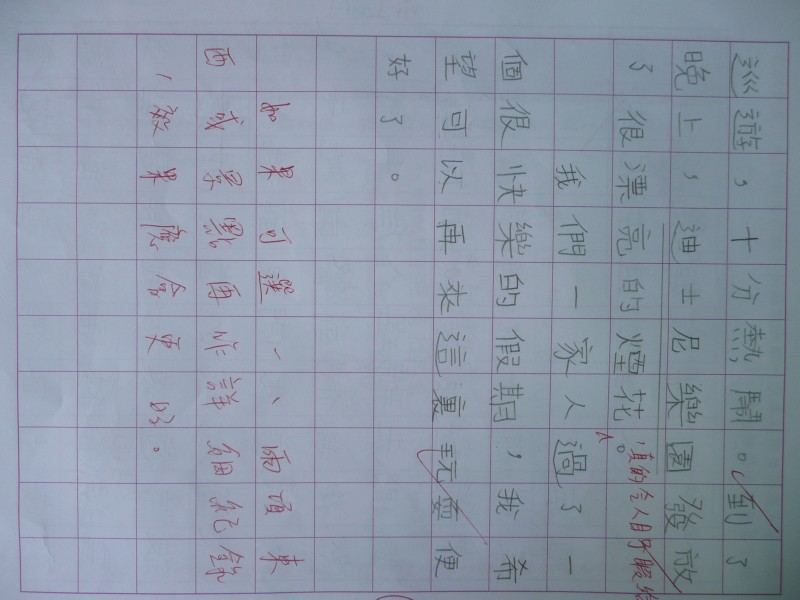 巡遊，十分熱鬧。到了
晚上，迪士尼樂園發放
了很漂亮的煙花。
真的令人目不暇給
我們一家人過了一
個很快樂的假期，我希
望可以再來這裏玩耍便
好了。
如果可選一、兩項東
西或景點再作詳細紀錄
，效果應會更好。